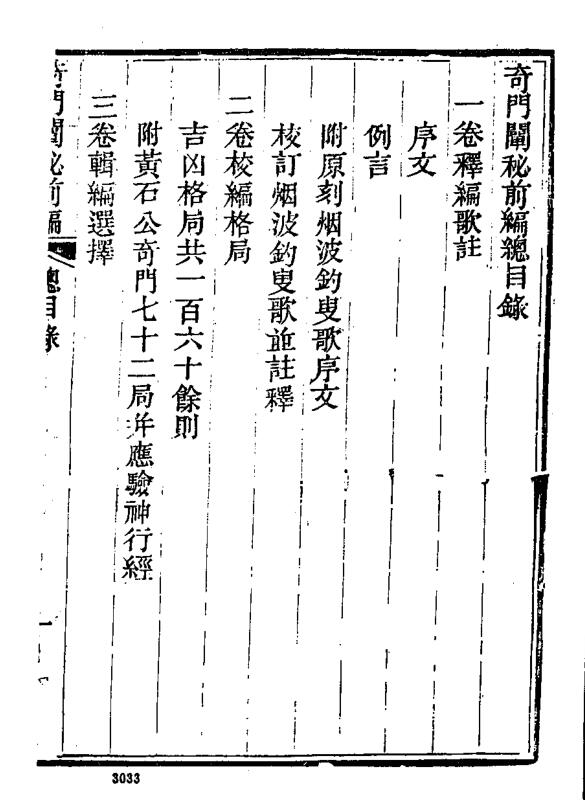 奇門闡秘前編總目錄
一卷釋編歌註
序文
例言
附原刻烟波釣叟歌序文
校訂烟波釣叟歌並註釋
二卷校編格局
吉凶格局共一百六十餘則
附黃石公奇門七十二局幷應驗神行經
三卷輯編選擇
奇門闡秘前編 總目錄 一
3033